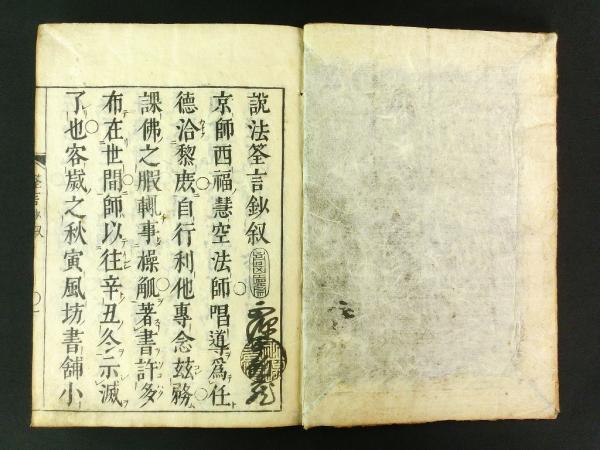 說法筌言鈔叙
京師西福慧空法師唱導爲任
德洽黎庶自行利他專念玆務
課佛之暇輒事操觚著書許多
布在世間師以往辛丑冬示滅
了也客歲之秋寅風坊書舖小
筌言鈔叙